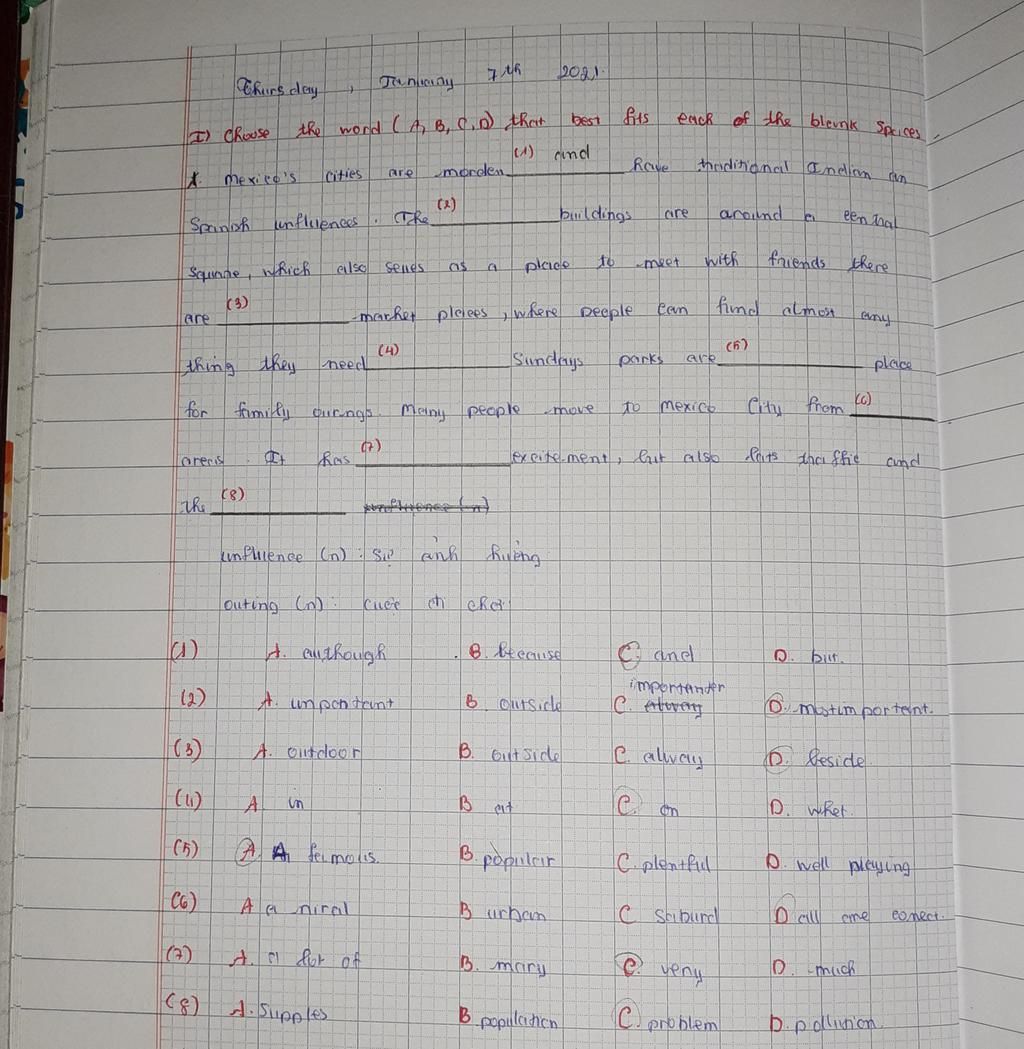 Thursday, January 7th 2021.
I) Choose the word (A, B, C, D) that best fits each of the blank spaces.
* Mexico's cities are morden (1) and have traditional Indian an
Spanish influences. The (2) buildings are around a central
square, which also serves as a place to meet with friends there
are (3) market places, where people can find almost any
thing they need (4) Sundays parks are (5) place
for family ourings. Many people move to mexico City from (6)
areas. It has (7) excitement, but also lots traffic and
the (8) influence (n)
influence (n): sự ảnh hưởng
outing (n): cuộc đi chơi
(1) A. authough B. because C. and D. but.
(2) A. important B. outside C. importanter D. most important.
(3) A. outdoor B. outside C. alway D. beside
(4) A in B at C. on D. what.
(5) A. famous. B. popular C. plentful D. well playing
(6) A a niral B urban C saburd D all are corect.
(7) A. a lot of B. many C. very D. much
(8) A. Supples B population C. problem D. pollution